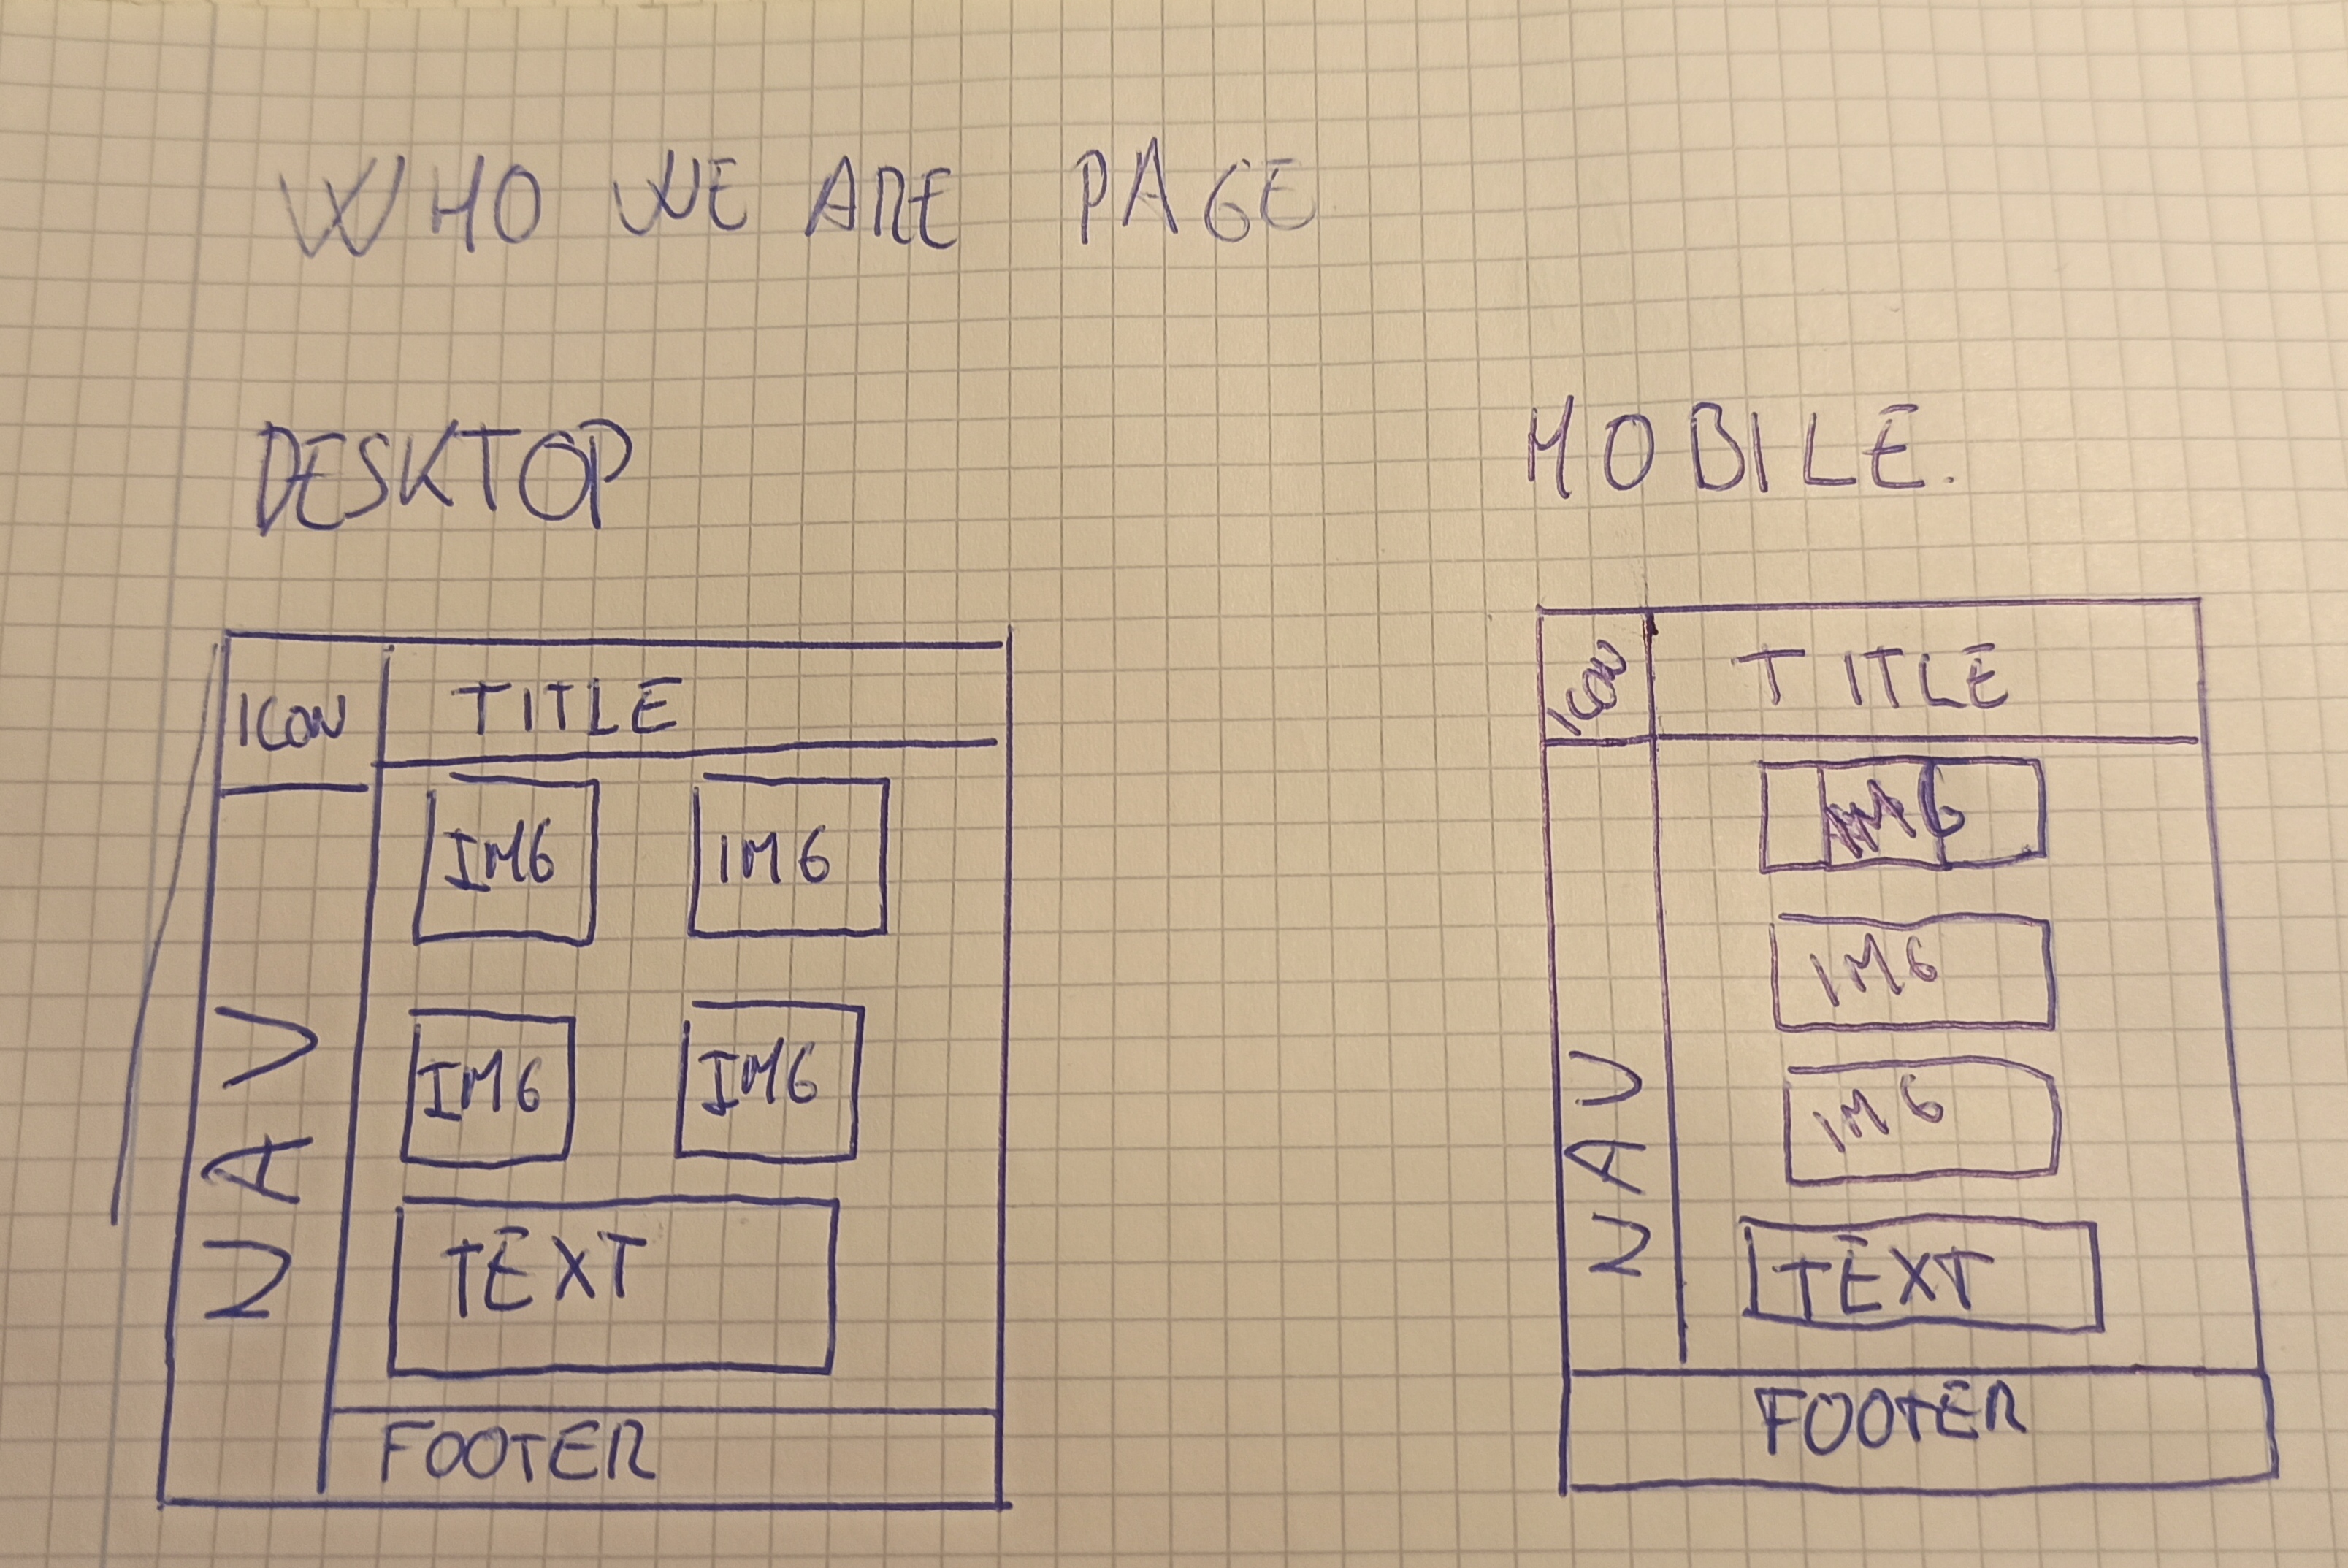 WHO WE ARE PAGE
DESKTOP
ICON
TITLE
IMG
IMG
IMG
IMG
NAV
TEXT
FOOTER
MOBILE.
ICON
TITLE
IMG
IMG
IMG
NAV
TEXT
FOOTER